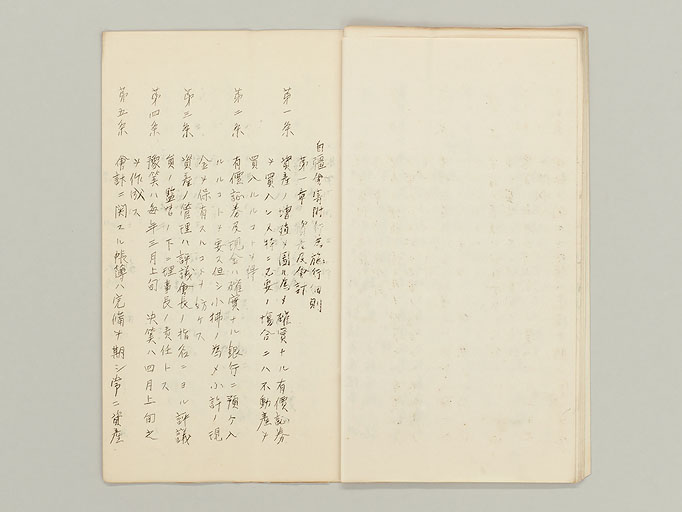 自彊會寄附行為施行細則
第一章 資産及会計
第一条 資産ノ増殖ヲ圖ル為メ確實ナル有價証券
ヲ買入レ又特ニ必要ノ場合ニハ不動産ヲ
買入ルルコトヲ得
第二条 有價証券及現金ハ確實ナル銀行ニ預ケ入
ルルコトヲ要ス但シ小拂ノ為メ小許ノ現
金ヲ保有スルコトヲ妨ケス
第三条 資産ノ管理ハ評議會長ノ指名ニヨル評議
員ノ監督ノ下ニ理事長ノ責任トス
第四条 豫算ハ毎年三月上旬 決算ハ四月上旬之
ヲ作成ス
第五条 會計ニ関スル帳簿ハ完備ヲ期シ常ニ資産